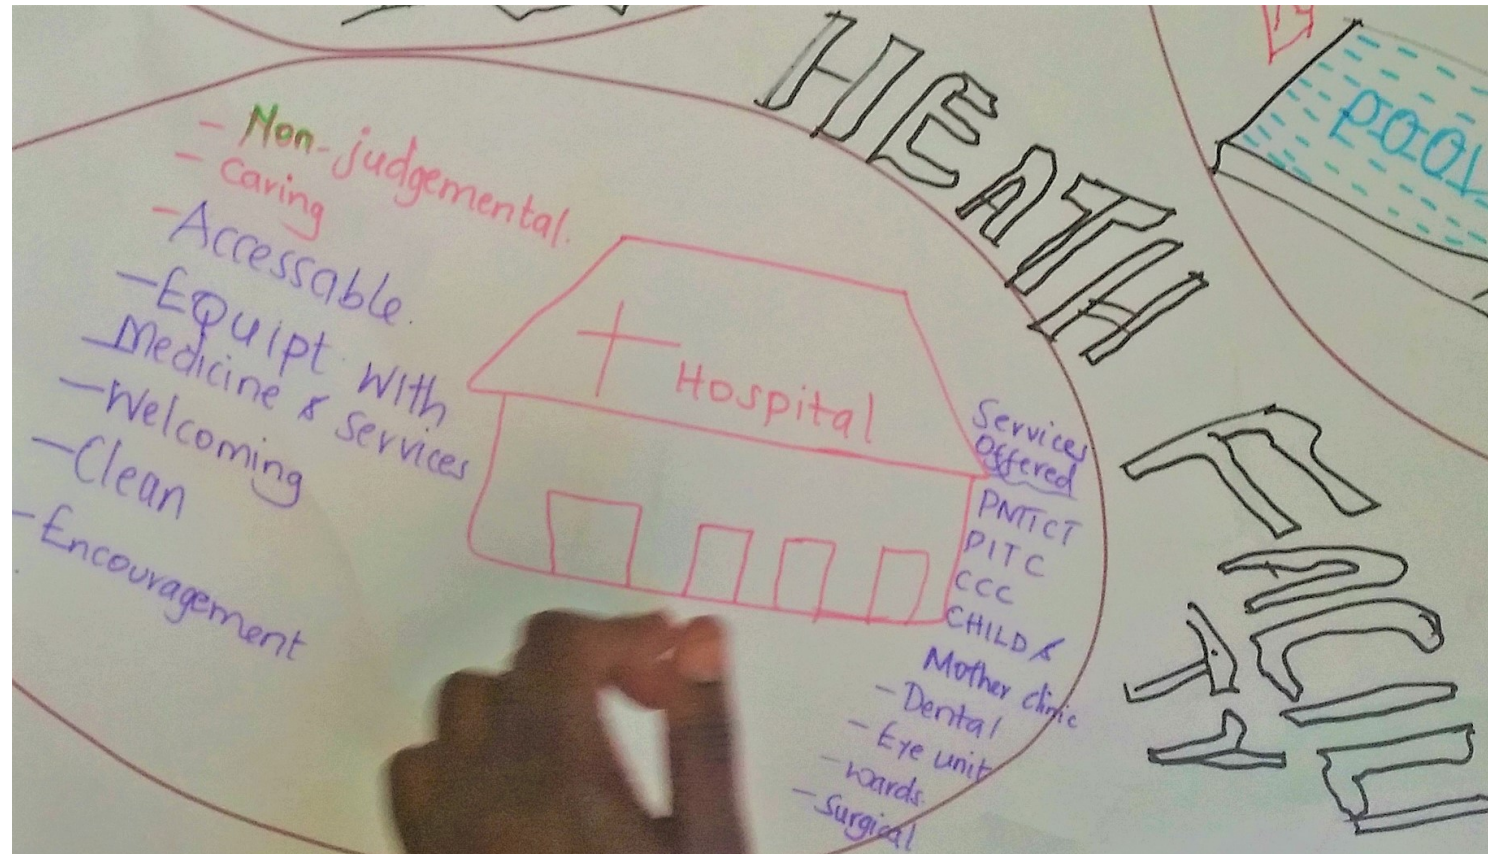 HEATH
POOL
- Non-judgemental.
- Caring
- Accessable.
- EQuipt with
Medicine & services
- Welcoming
- Clean
- Encouragement
Hospital
Services
Offered
PMTCT
PITC
CCC
CHILD &
Mother clinic
- Dental
- Eye unit
- Wards.
- Surgical